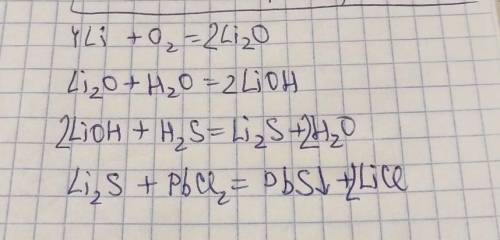 4Li + O₂ = 2Li₂O
Li₂O + H₂O = 2LiOH
2LiOH + H₂S = Li₂S + 2H₂O
Li₂S + PbCl₂ = PbS↓ + 2LiCl